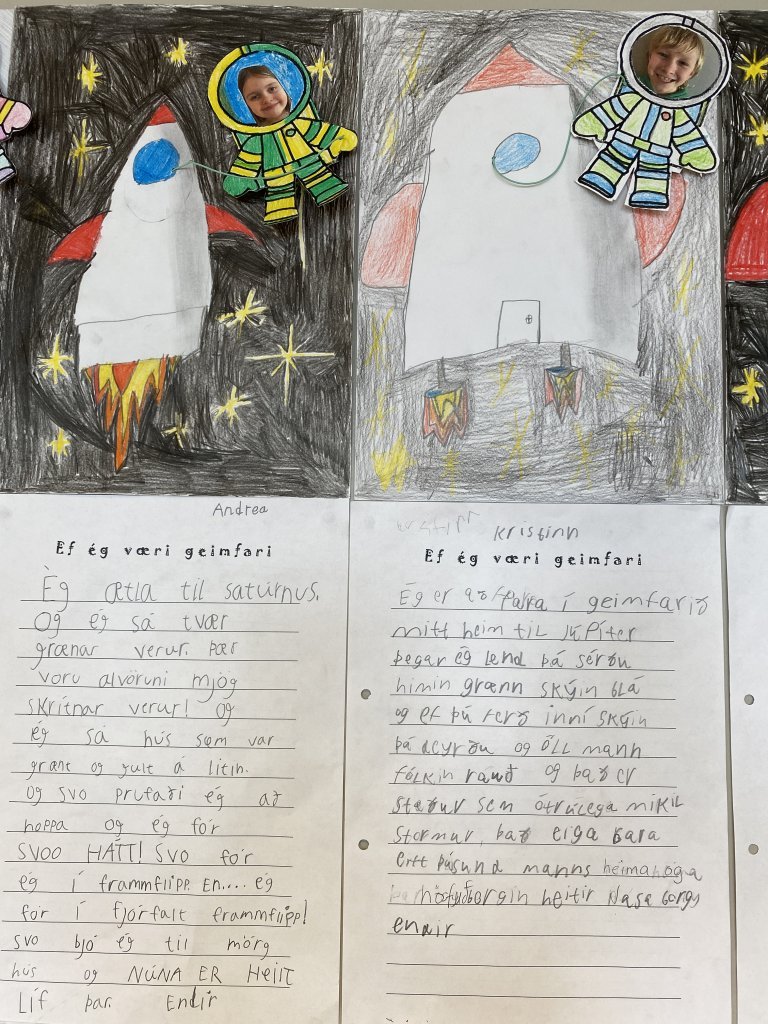 Andrea
Ef ég væri geimfari
Ég ætla til satúrnus.
Og ég sá tvær
grænar verur. þær
voru alvöruni mjög
skrítnar verur! og
ég sá hús sem var
grænt og gult á litin.
og svo prufaði ég að
hoppa og ég fór
SVOO HÁTT! SVO fór
ég í frammflipp. En.... ég
fór í fjórfalt frammflipp!
svo bjó ég til mörg
hús og NÚNA ER HEILT
Líf þar. Endir
Kristinn
Ef ég væri geimfari
Ég er að í geimfarið
mitt heim til júpíter
þegar ég lend þá sérðu
himin grænn skýin blá
og ef þú ferð inní skýin
þá deyrðu og öll mann
fólkin rauð og það er
staður sem ótrúlega mikil
stormur, það eiga bara
eitt þúsund manns heima
höfuðborgin heitir Nasa borg
endir